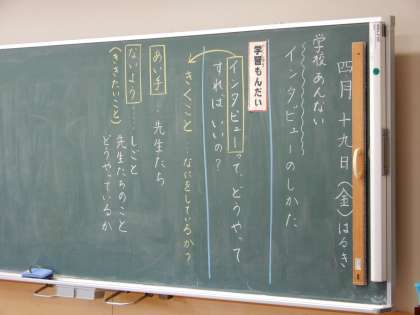 四月 十九日(金)はるき
学校あんない
インタビューのしかた
学習もんだい
インタビューって、どうやって
すれば、いいの?
きくこと…なにをしているか?
あい手…先生たち
ないよう…しごと
(ききたいこと) 先生たちのこと
どうやっているか